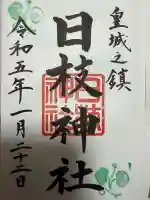 皇城之鎮
日枝神社
令和五年一月二十二日